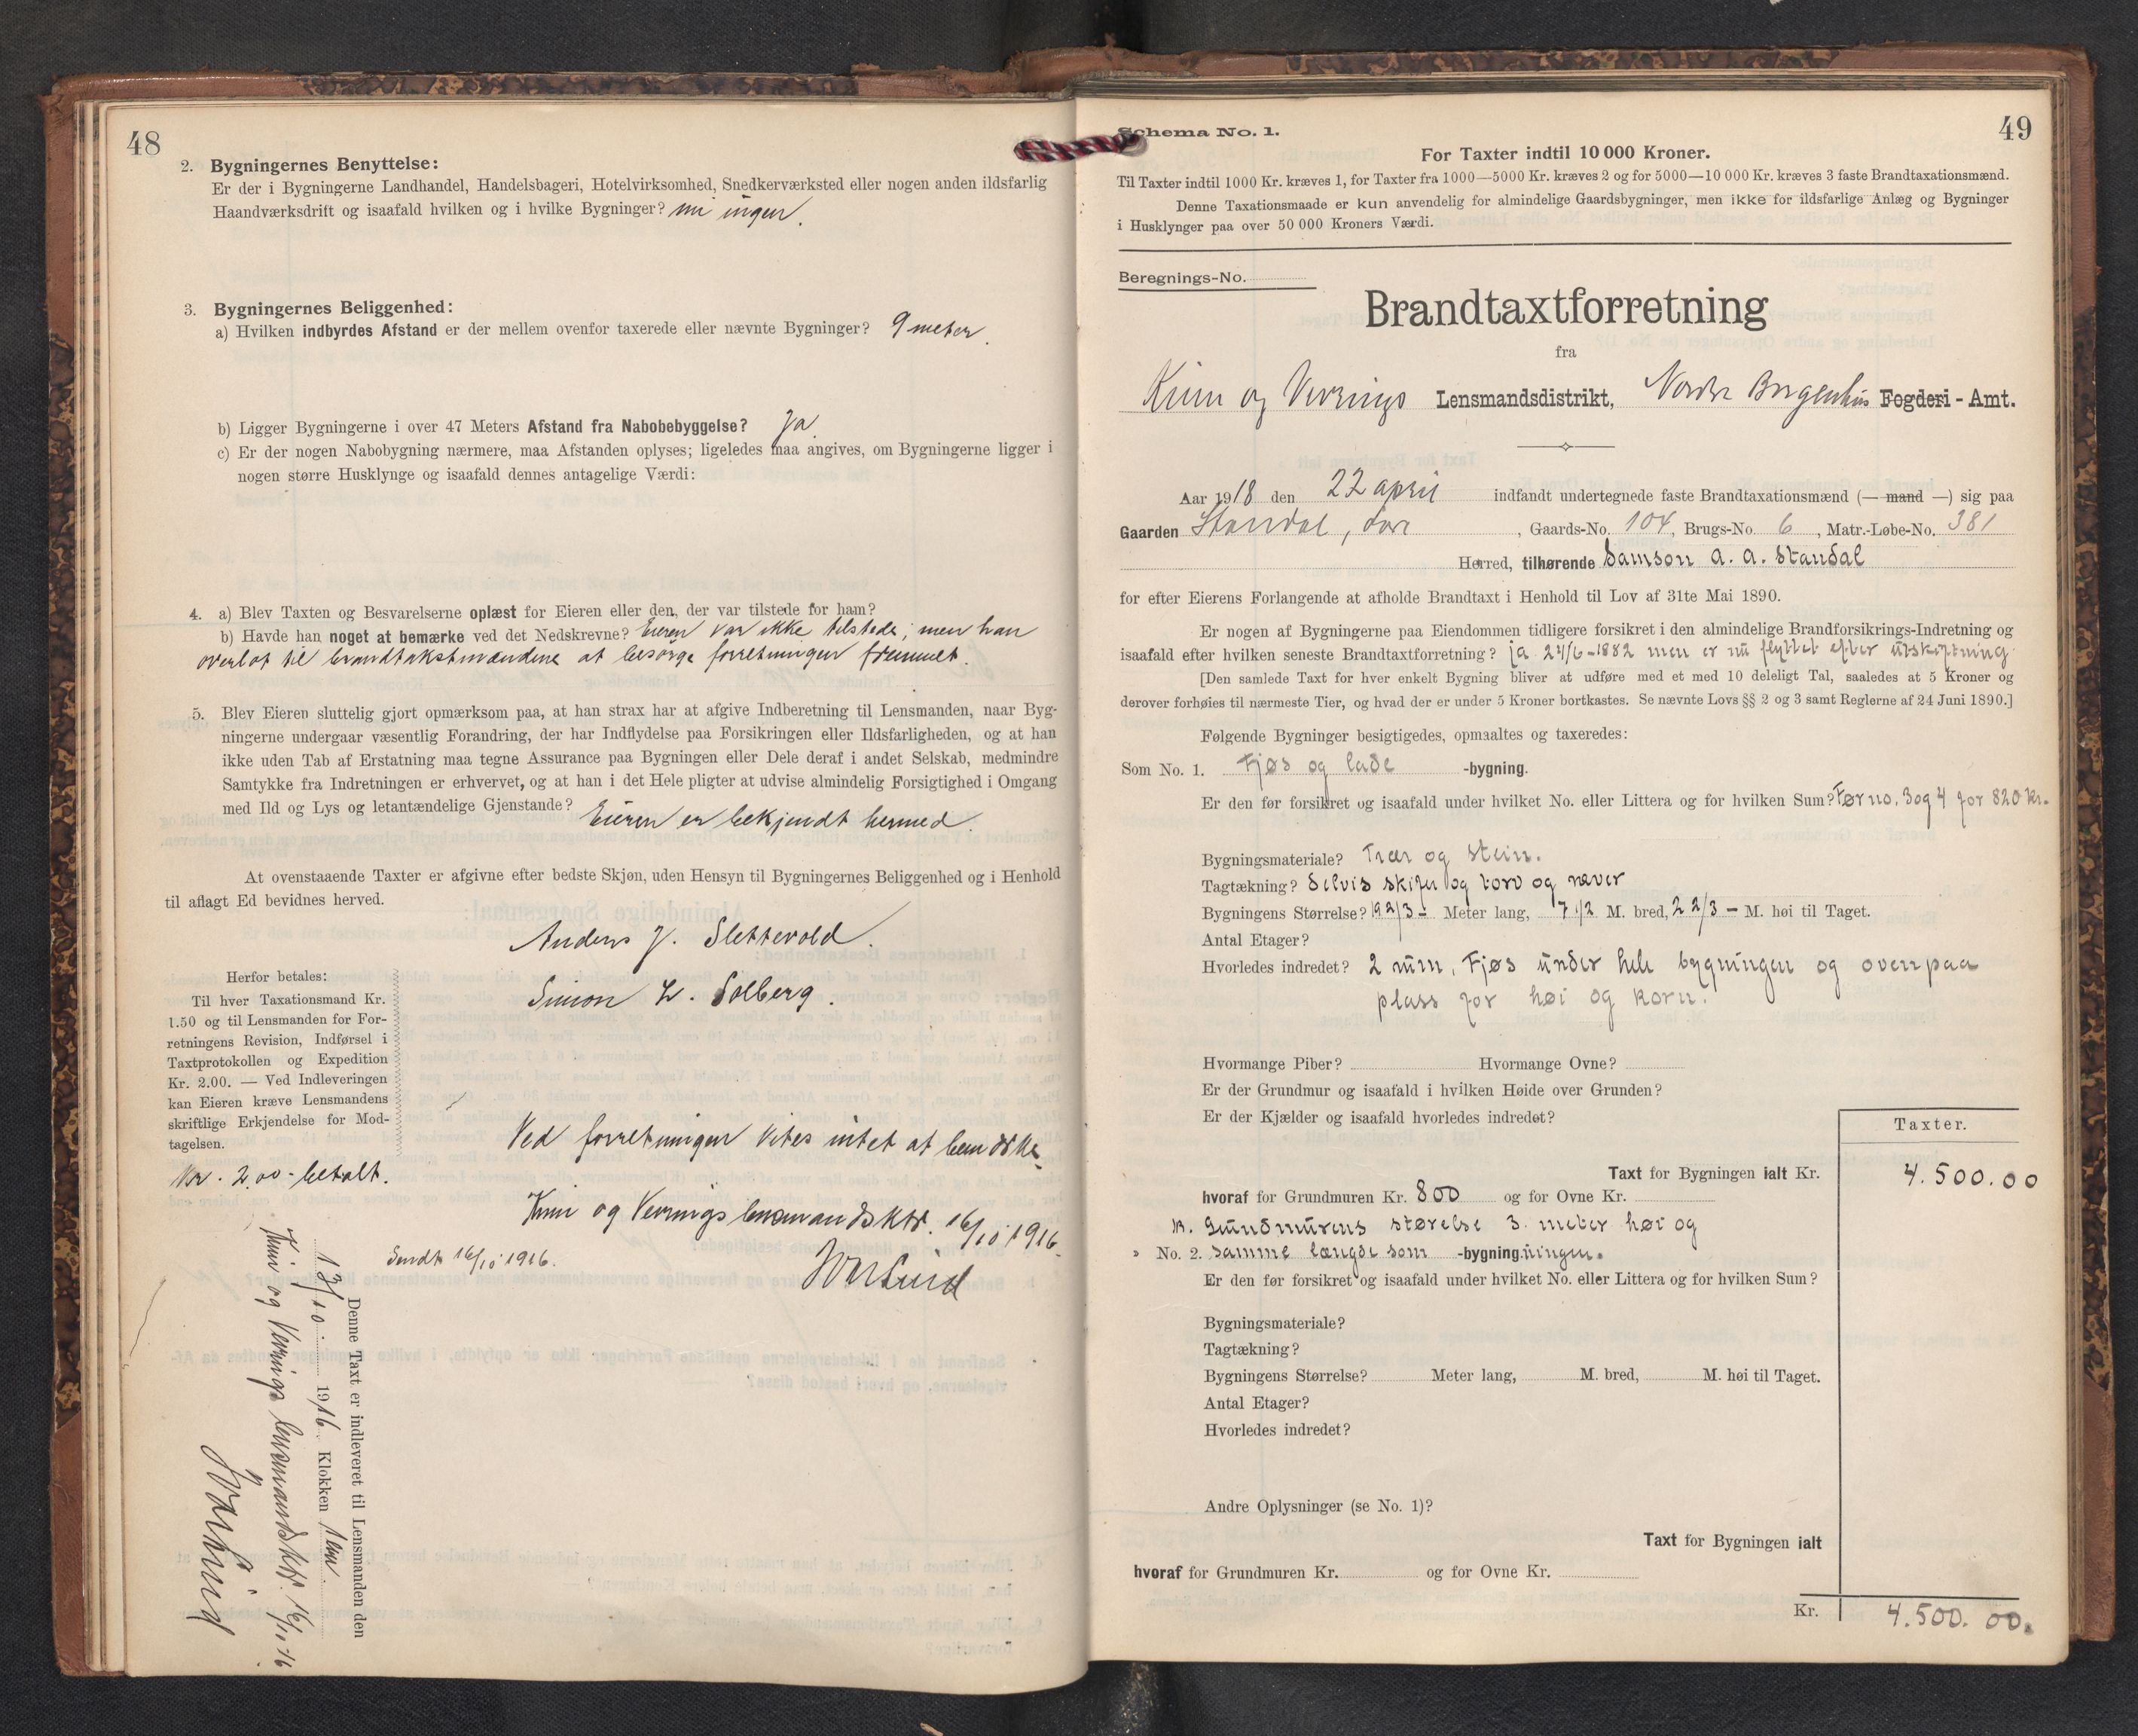 48
2. Bygningernes Benyttelse:
Er der i Bygningerne Landhandel, Handelsbageri, Hotelvirksomhed, Snedkerværksted eller nogen anden ildsfarlig
Haandværksdrift og isaafald hvilken og i hvilke Bygninger? nei ingen.
3. Bygningernes Beliggenhed:
a) Hvilken indbyrdes Afstand er der mellem ovenfor taxerede eller nævnte Bygninger? 9 meter.
b) Ligger Bygningerne i over 47 Meters Afstand fra Nabobebyggelse? Ja.
c) Er der nogen Nabobygning nærmere, maa Afstanden oplyses; ligeledes maa angives, om Bygningerne ligger i
nogen større Husklynge og isaafald dennes antagelige Værdi:
4. a) Blev Taxten og Besvarelserne oplæst for Eieren eller den, der var tilstede for ham?
b) Havde han noget at bemærke ved det Nedskrevne? Eieren var ikke tilstede; men han
overlot til brandtakstmændene at besørge forretningen fremmet.
5. Blev Eieren sluttelig gjort opmærksom paa, at han strax har at afgive Indberetning til Lensmanden, naar Byg-
ningerne undergaar væsentlig Forandring, der har Indflydelse paa Forsikringen eller Ildsfarligheden, og at han
ikke uden Tab af Erstatning maa tegne Assurance paa Bygningen eller Dele deraf i andet Selskab, medmindre
Samtykke fra Indretningen er erhvervet, og at han i det Hele pligter at udvise almindelig Forsigtighed i Omgang
med Ild og Lys og letantændelige Gjenstande? Eieren er bekjendt hermed.
At ovenstaaende Taxter er afgivne efter bedste Skjøn, uden Hensyn til Bygningernes Beliggenhed og i Henhold
til aflagt Ed bevidnes herved.
Anders J. Slettevold.
Simon L. Solberg.
Herfor betales:
Til hver Taxationsmand Kr.
1.50 og til Lensmanden for For-
retningens Revision, Indførsel i
Taxtprotokollen og Expedition
Kr. 2.00. — Ved Indleveringen
kan Eieren kræve Lensmandens
skriftlige Erkjendelse for Mod-
tagelsen.
Kr. 2.00 - betalt.
Ved forretningen vites intet at bemærke.
Kinn og Vevrings lensmandsktr. 16/10 1916.
Sendt 16/10 1916.
Denne Taxt er indleveret til Lensmanden den
13/10 1916 Klokken 1 em.
Kinn og Vevrings lensmandsktr. 16/10-16
49
Schema No. 1.
For Taxter indtil 10 000 Kroner.
Til Taxter indtil 1000 Kr. kræves 1, for Taxter fra 1000—5000 Kr. kræves 2 og for 5000—10 000 Kr. kræves 3 faste Brandtaxationsmænd.
Denne Taxationsmaade er kun anvendelig for almindelige Gaardsbygninger, men ikke for ildsfarlige Anlæg og Bygninger
i Husklynger paa over 50 000 Kroners Værdi.
Beregnings-No.
Brandtaxtforretning
fra
Kinn og Vevrings Lensmandsdistrikt, Nordre Bergenhus Fogderi - Amt.
Aar 1918 den 22 april indfandt undertegnede faste Brandtaxationsmænd (— mand —) sig paa
Gaarden Standal, Gaards-No. 104, Brugs-No. 6, Matr.-Løbe-No. 381
Herred, tilhørende Samson A. A. Standal
for efter Eierens Forlangende at afholde Brandtaxt i Henhold til Lov af 31te Mai 1890.
Er nogen af Bygningerne paa Eiendommen tidligere forsikret i den almindelige Brandforsikrings-Indretning og
isaafald efter hvilken seneste Brandtaxtforretning? ja 24/6-1882 men er nu flyttet efter utskiftning
[Den samlede Taxt for hver enkelt Bygning bliver at udføre med et med 10 deleligt Tal, saaledes at 5 Kroner og
derover forhøies til nærmeste Tier, og hvad der er under 5 Kroner bortkastes. Se nævnte Lovs §§ 2 og 3 samt Reglerne af 24 Juni 1890.]
Følgende Bygninger besigtigedes, opmaaltes og taxeredes:
Som No. 1. Fjøs og lade -bygning.
Er den før forsikret og isaafald under hvilket No. eller Littera og for hvilken Sum? Før no. 3 og 4 for 820 kr.
Bygningsmateriale? Trær og stein.
Tagtækning? Delvis skifer og torv og næver
Bygningens Størrelse? 19 2/3 - Meter lang, 7 1/2 M. bred, 2 2/3 - M. høi til Taget.
Antal Etager?
Hvorledes indredet? 2 rum, Fjøs under hele bygningen og ovenpaa
plass for høi og korn.
Hvormange Piber? Hvormange Ovne?
Er der Grundmur og isaafald i hvilken Høide over Grunden?
Er der Kjælder og isaafald hvorledes indredet?
Taxter.
Taxt for Bygningen ialt Kr. 4.500.00
hvoraf for Grundmuren Kr. 800 og for Ovne Kr.
Gundmurens størelse 3. meter høi og
» No. 2. samme længde som -bygningningen.
Er den før forsikret og isaafald under hvilket No. eller Littera og for hvilken Sum?
Bygningsmateriale?
Tagtækning?
Bygningens Størrelse? Meter lang, M. bred, M. høi til Taget.
Antal Etager?
Hvorledes indredet?
Andre Oplysninger (se No. 1)?
Taxt for Bygningen ialt
hvoraf for Grundmuren Kr. og for Ovne Kr.
Kr. 4.500. 00.